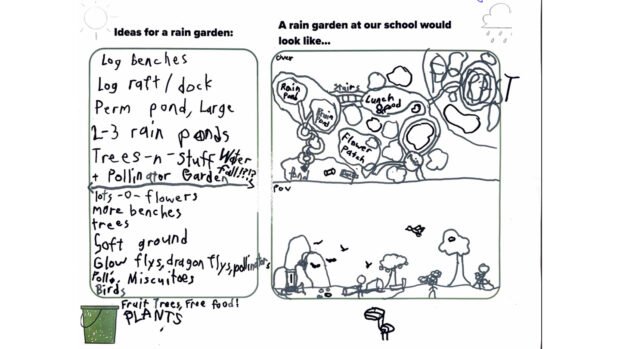 Ideas for a rain garden:
Log benches
Log raft/dock
Perm pond, Large
2-3 rain ponds
Trees-n-stuff Water
fall!?!?
+ Pollinator Garden
lots-o-flowers
more benches
trees
Soft ground
Glow flys, dragon flys, pollinators
Miscuitoes
Birds
Fruit Trees, Free food!
PLANTS
A rain garden at our school would
look like...
Over
Rain
Pond
Rain
Pond
Stairs
Lunch
Flower
Patch
POV